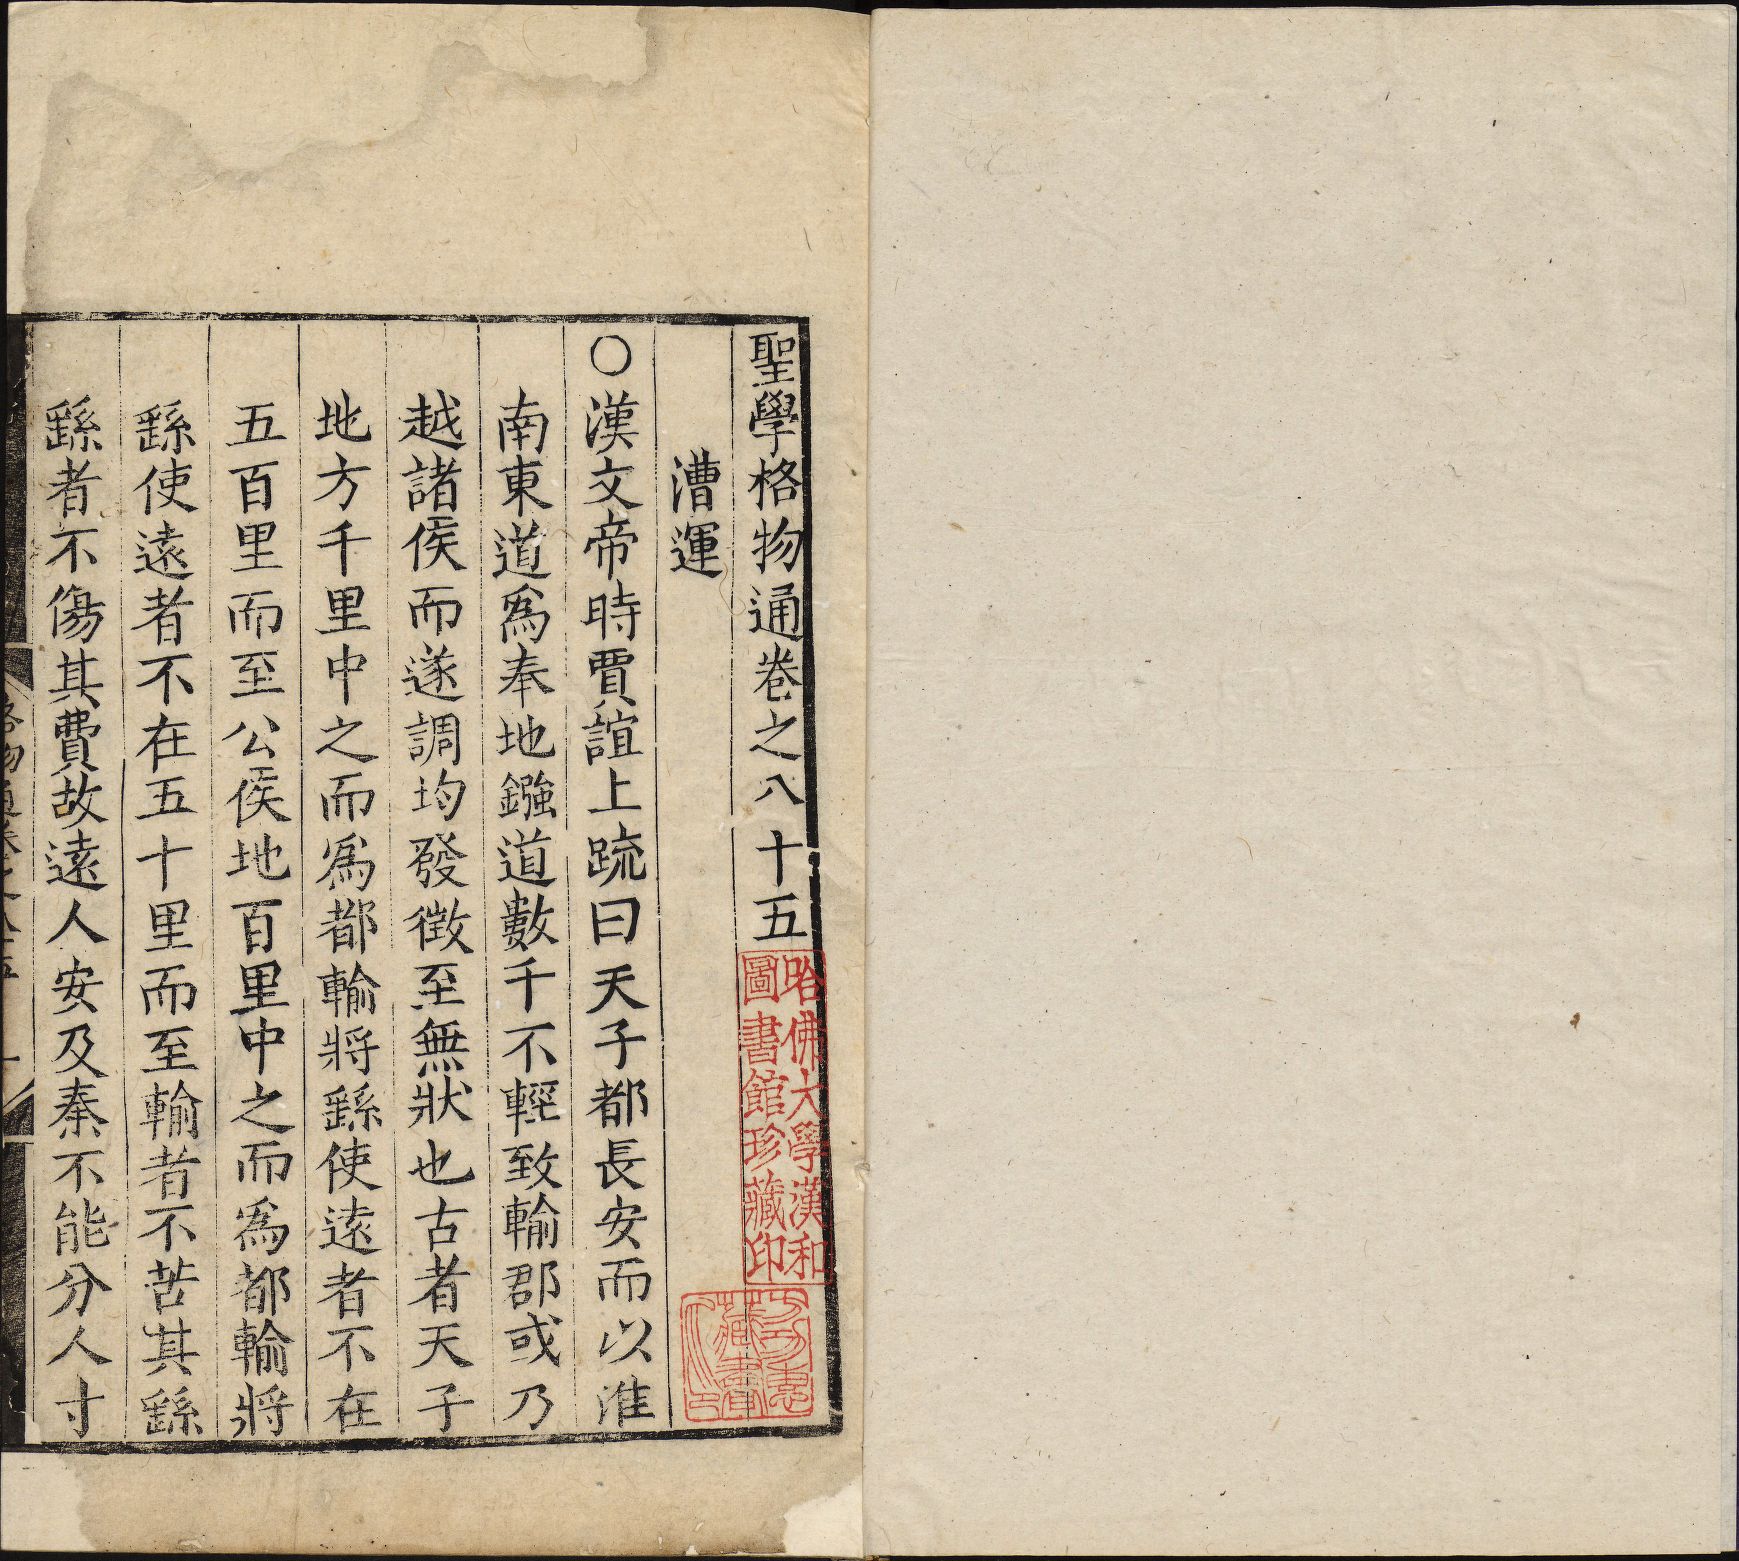 聖學格物通卷之八十五
漕運
〇漢文帝時賈誼上疏曰天子都長安而以淮
南東道爲奉地鏹道數千不輕致輸郡或乃
越諸侯而遂調均發徵至無狀也古者天子
地方千里中之而爲都輸將繇使遠者不在
五百里而至公侯地百里中之而爲都輸將
繇使遠者不在五十里而至輸者不苦其繇
繇者不傷其費故遠人安及秦不能分人寸
哈佛大學漢和
圖書館珍藏印
藏書